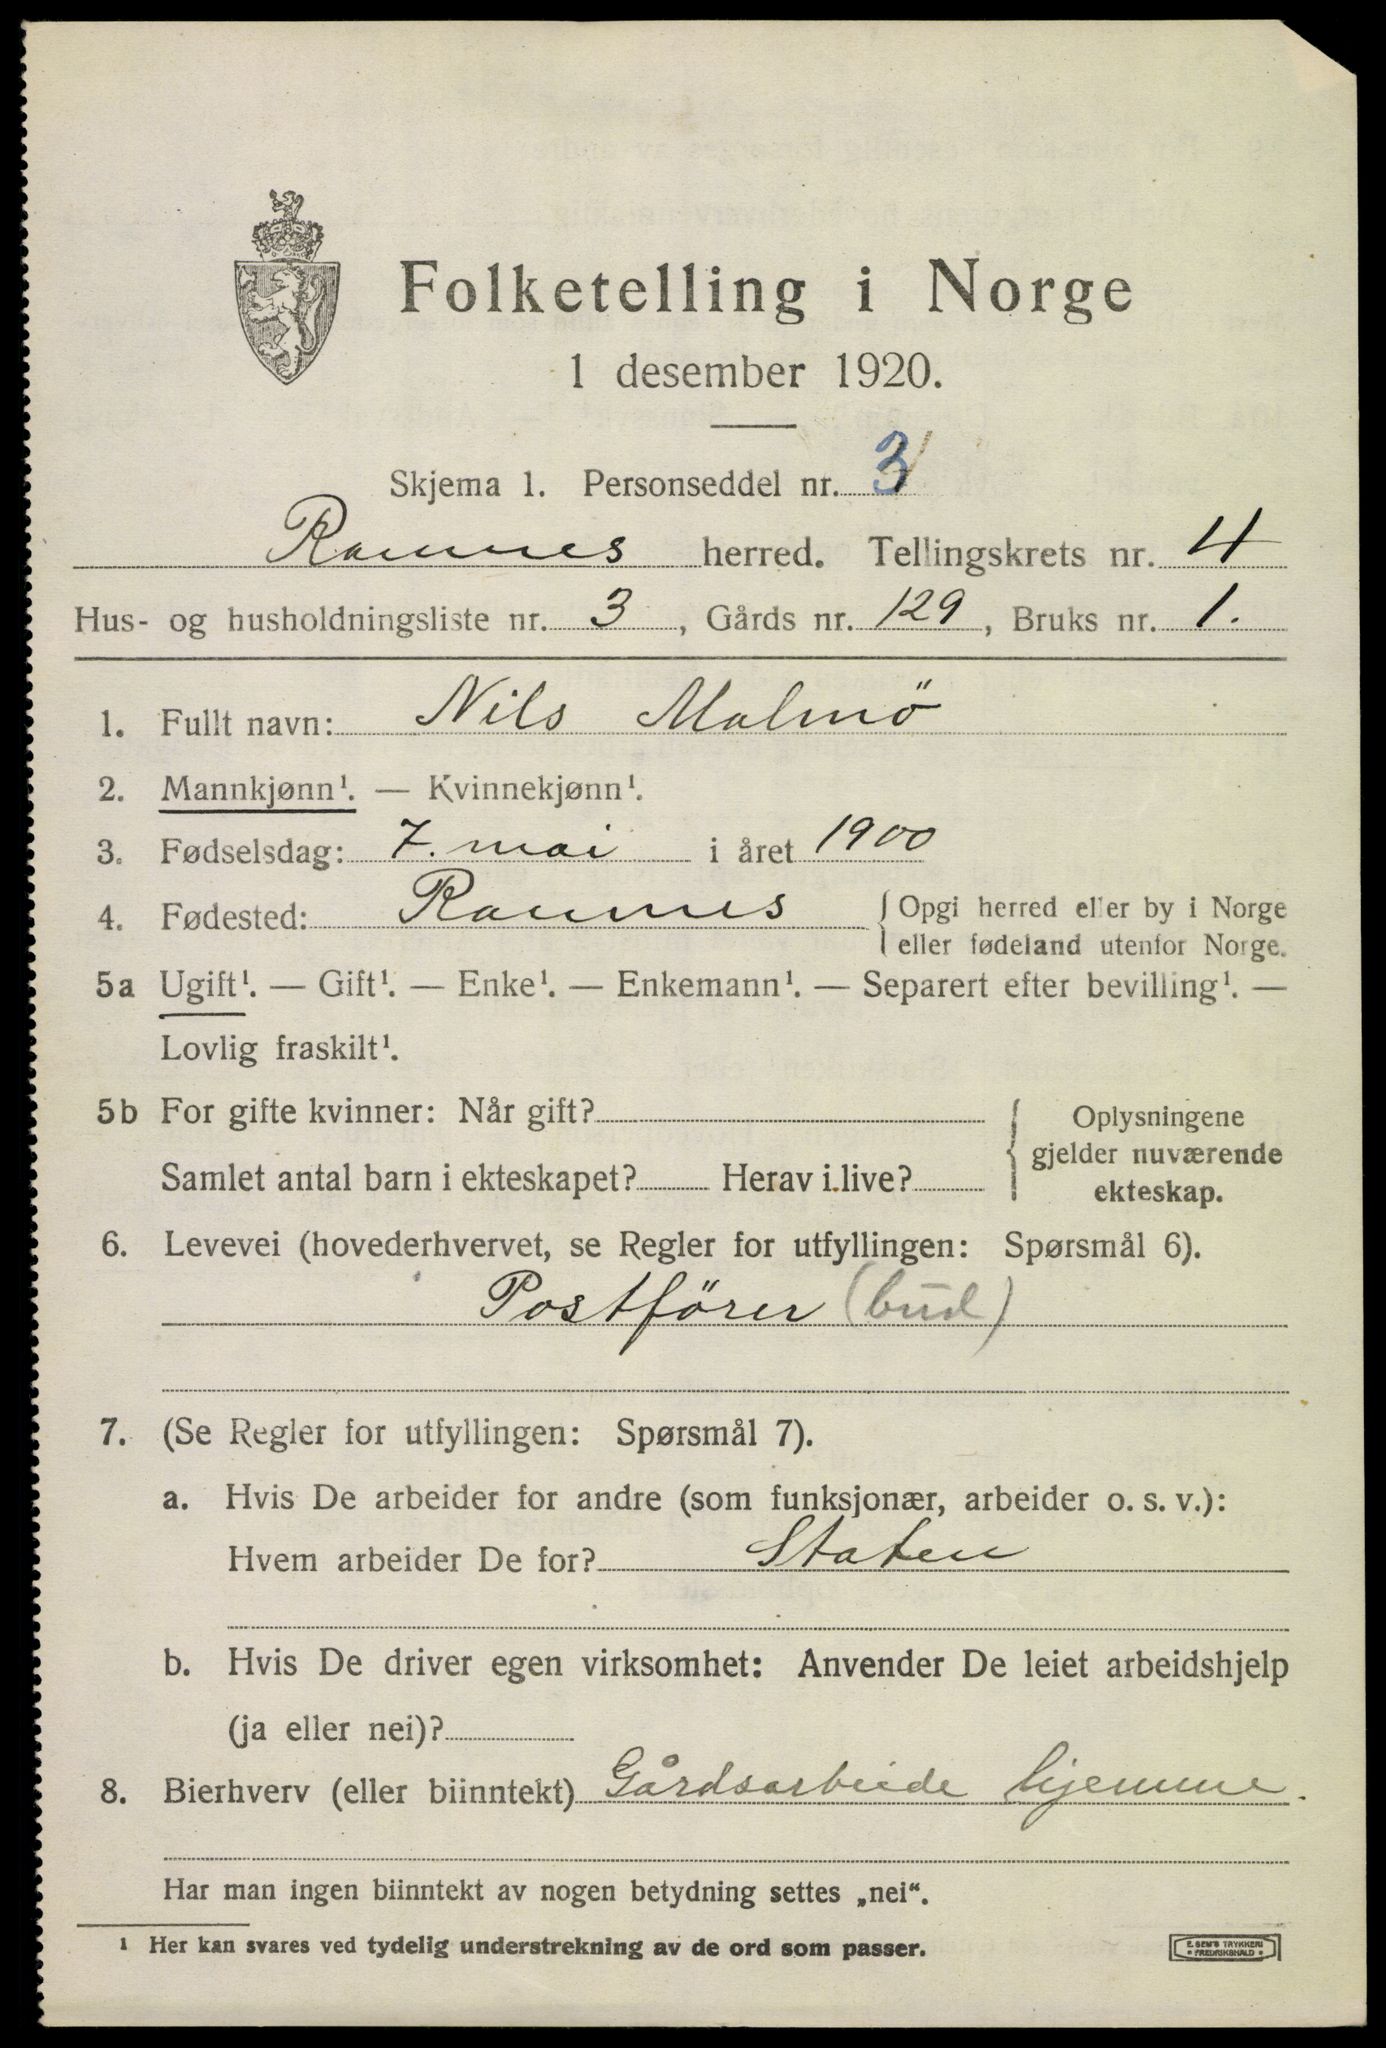 Folketelling i Norge
1 desember 1920.
Skjema 1. Personseddel nr. 3
Ramnes herred. Tellingskrets nr. 4
Hus- og husholdningsliste nr. 3, Gårds nr. 129, Bruks nr. 1.
1. Fullt navn: Nils Malmö
2. Mannkjønn¹. — Kvinnekjønn¹.
3. Fødselsdag: 7. mai i året 1900
4. Fødested: Ramnes { Opgi herred eller by i Norge
eller fødeland utenfor Norge.
5a Ugift¹. — Gift¹. — Enke¹. — Enkemann¹. — Separert efter bevilling¹. —
Lovlig fraskilt¹.
5b For gifte kvinner: Når gift? { Oplysningene
gjelder nuværende
Samlet antal barn i ekteskapet? Herav i live? ekteskap.
6. Levevei (hovederhvervet, se Regler for utfyllingen: Spørsmål 6).
Postförer (bud)
7. (Se Regler for utfyllingen: Spørsmål 7).
a. Hvis De arbeider for andre (som funksjonær, arbeider o. s. v.):
Hvem arbeider De for? Staten
b. Hvis De driver egen virksomhet: Anvender De leiet arbeidshjelp
(ja eller nei)?
8. Bierhverv (eller biinntekt) Gårdsarbeide hjemme.
Har man ingen biinntekt av nogen betydning settes „nei“.
¹ Her kan svares ved tydelig understrekning av de ord som passer.
E. SEM'S TRYKKERI
FREDRIKSHALD